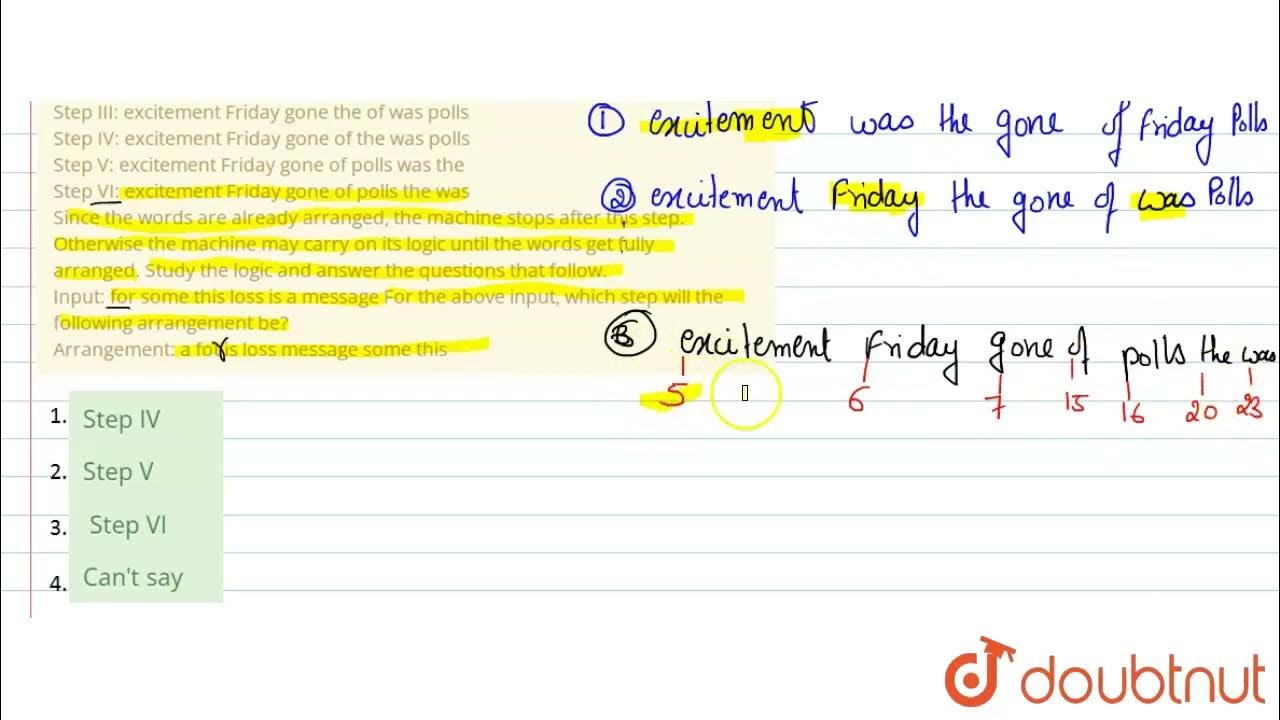 Step III: excitement Friday gone the of was polls
Step IV: excitement Friday gone of the was polls
Step V: excitement Friday gone of polls was the
Step VI: excitement Friday gone of polls the was
Since the words are already arranged, the machine stops after this step.
Otherwise the machine may carry on its logic until the words get fully
arranged. Study the logic and answer the questions that follow.
Input: for some this loss is a message For the above input, which step will the
following arrangement be?
Arrangement: a for is loss message some this
1. Step IV
2. Step V
3. Step VI
4. Can't say
① excitement was the gone of Friday Polls
② excitement Friday the gone of was Polls
excitement Friday gone of polls the was
5 6 7 15 16 20 23
doubtnut